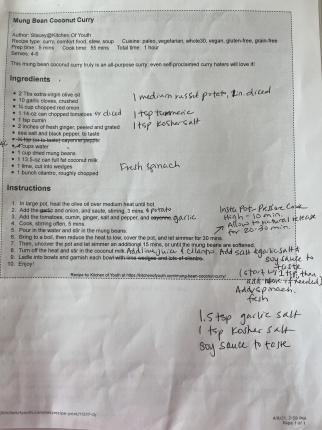 Mung Bean Coconut Curry
Author: Stacey@Kitchen Of Youth
Recipe type: curry, comfort food, stew, soup Cuisine: paleo, vegetarian, whole30, vegan, gluten-free, grain-free
Prep time: 5 mins Cook time: 55 mins Total time: 1 hour
Serves: 4-6
This mung bean coconut curry truly is an all-purpose curry; even self-proclaimed curry haters will love it!
Ingredients
2 Tbs extra-virgin olive oil
10 garlic cloves, crushed
½ cup chopped red onion
1 14-oz can chopped tomatoes or diced
1 tsp cumin
2 inches of fresh ginger, peeled and grated
sea salt and black pepper, to taste
cayenne pepper
cups water
1 cup dried mung beans
1 13.5-oz can full fat coconut milk
1 lime, cut into wedges
1 bunch cilantro, roughly chopped
1 medium russet potato, diced
1 tsp turmeric
1 tsp kosher salt
Fresh spinach
Instructions
1. In large pot, heat the olive oil over medium heat until hot.
2. Add the garlic and onion, and saute, stirring, 3 mins. + potato
3. Add the tomatoes, cumin, ginger, salt and pepper, and cayenne. garlic
4. Cook, stirring often, 5 mins.
5. Pour in the water and stir in the mung beans.
6. Bring to a boil, then reduce the heat to low, cover the pot, and let simmer for 30 mins.
7. Then, uncover the pot and let simmer an additional 15 mins, or until the mung beans are softened.
8. Turn off the heat and stir in the coconut milk. Add lime juice + cilantro. Add salt + garlic salt +
9. Ladle into bowls and garnish each bowl with lime wedges and lots of cilantro.
10. Enjoy!
Insta Pot - Pressure Cook
High - 10 min.
Allow to natural release
for 20-30 min.
soy sauce to
taste
(start w/ 1 tsp, then
add more if needed)
Add spinach
fresh
Recipe by Kitchen of Youth at
1.5 tsp garlic salt
1 tsp kosher salt
soy sauce to taste
Page 1 of 1